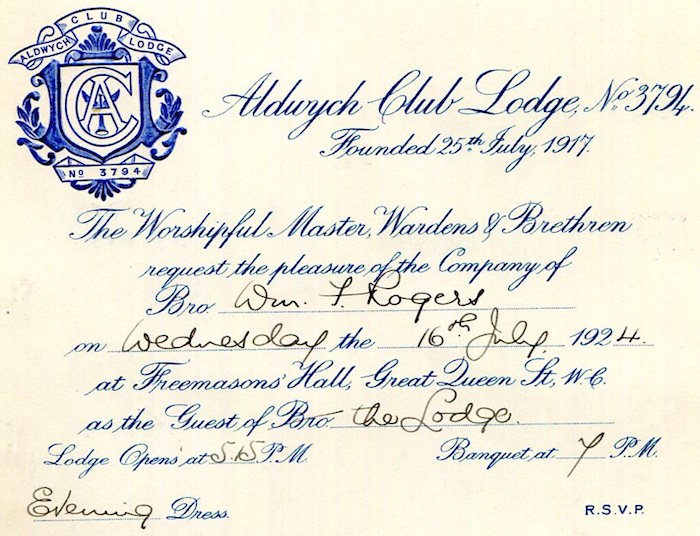 ALDWYCH CLUB LODGE
CA
Nº 3794
Aldwych Club Lodge, No. 3794.
Founded 25th July, 1917.
The Worshipful Master, Wardens & Brethren
request the pleasure of the Company of
Bro. Wm. F. Rogers
on Wednesday the 16th July, 1924.
at Freemasons' Hall, Great Queen St, W.C.
as the Guest of Bro. the Lodge.
Lodge Opens at 5.15 P.M. Banquet at 7 P.M.
Evening Dress.
R.S.V.P.